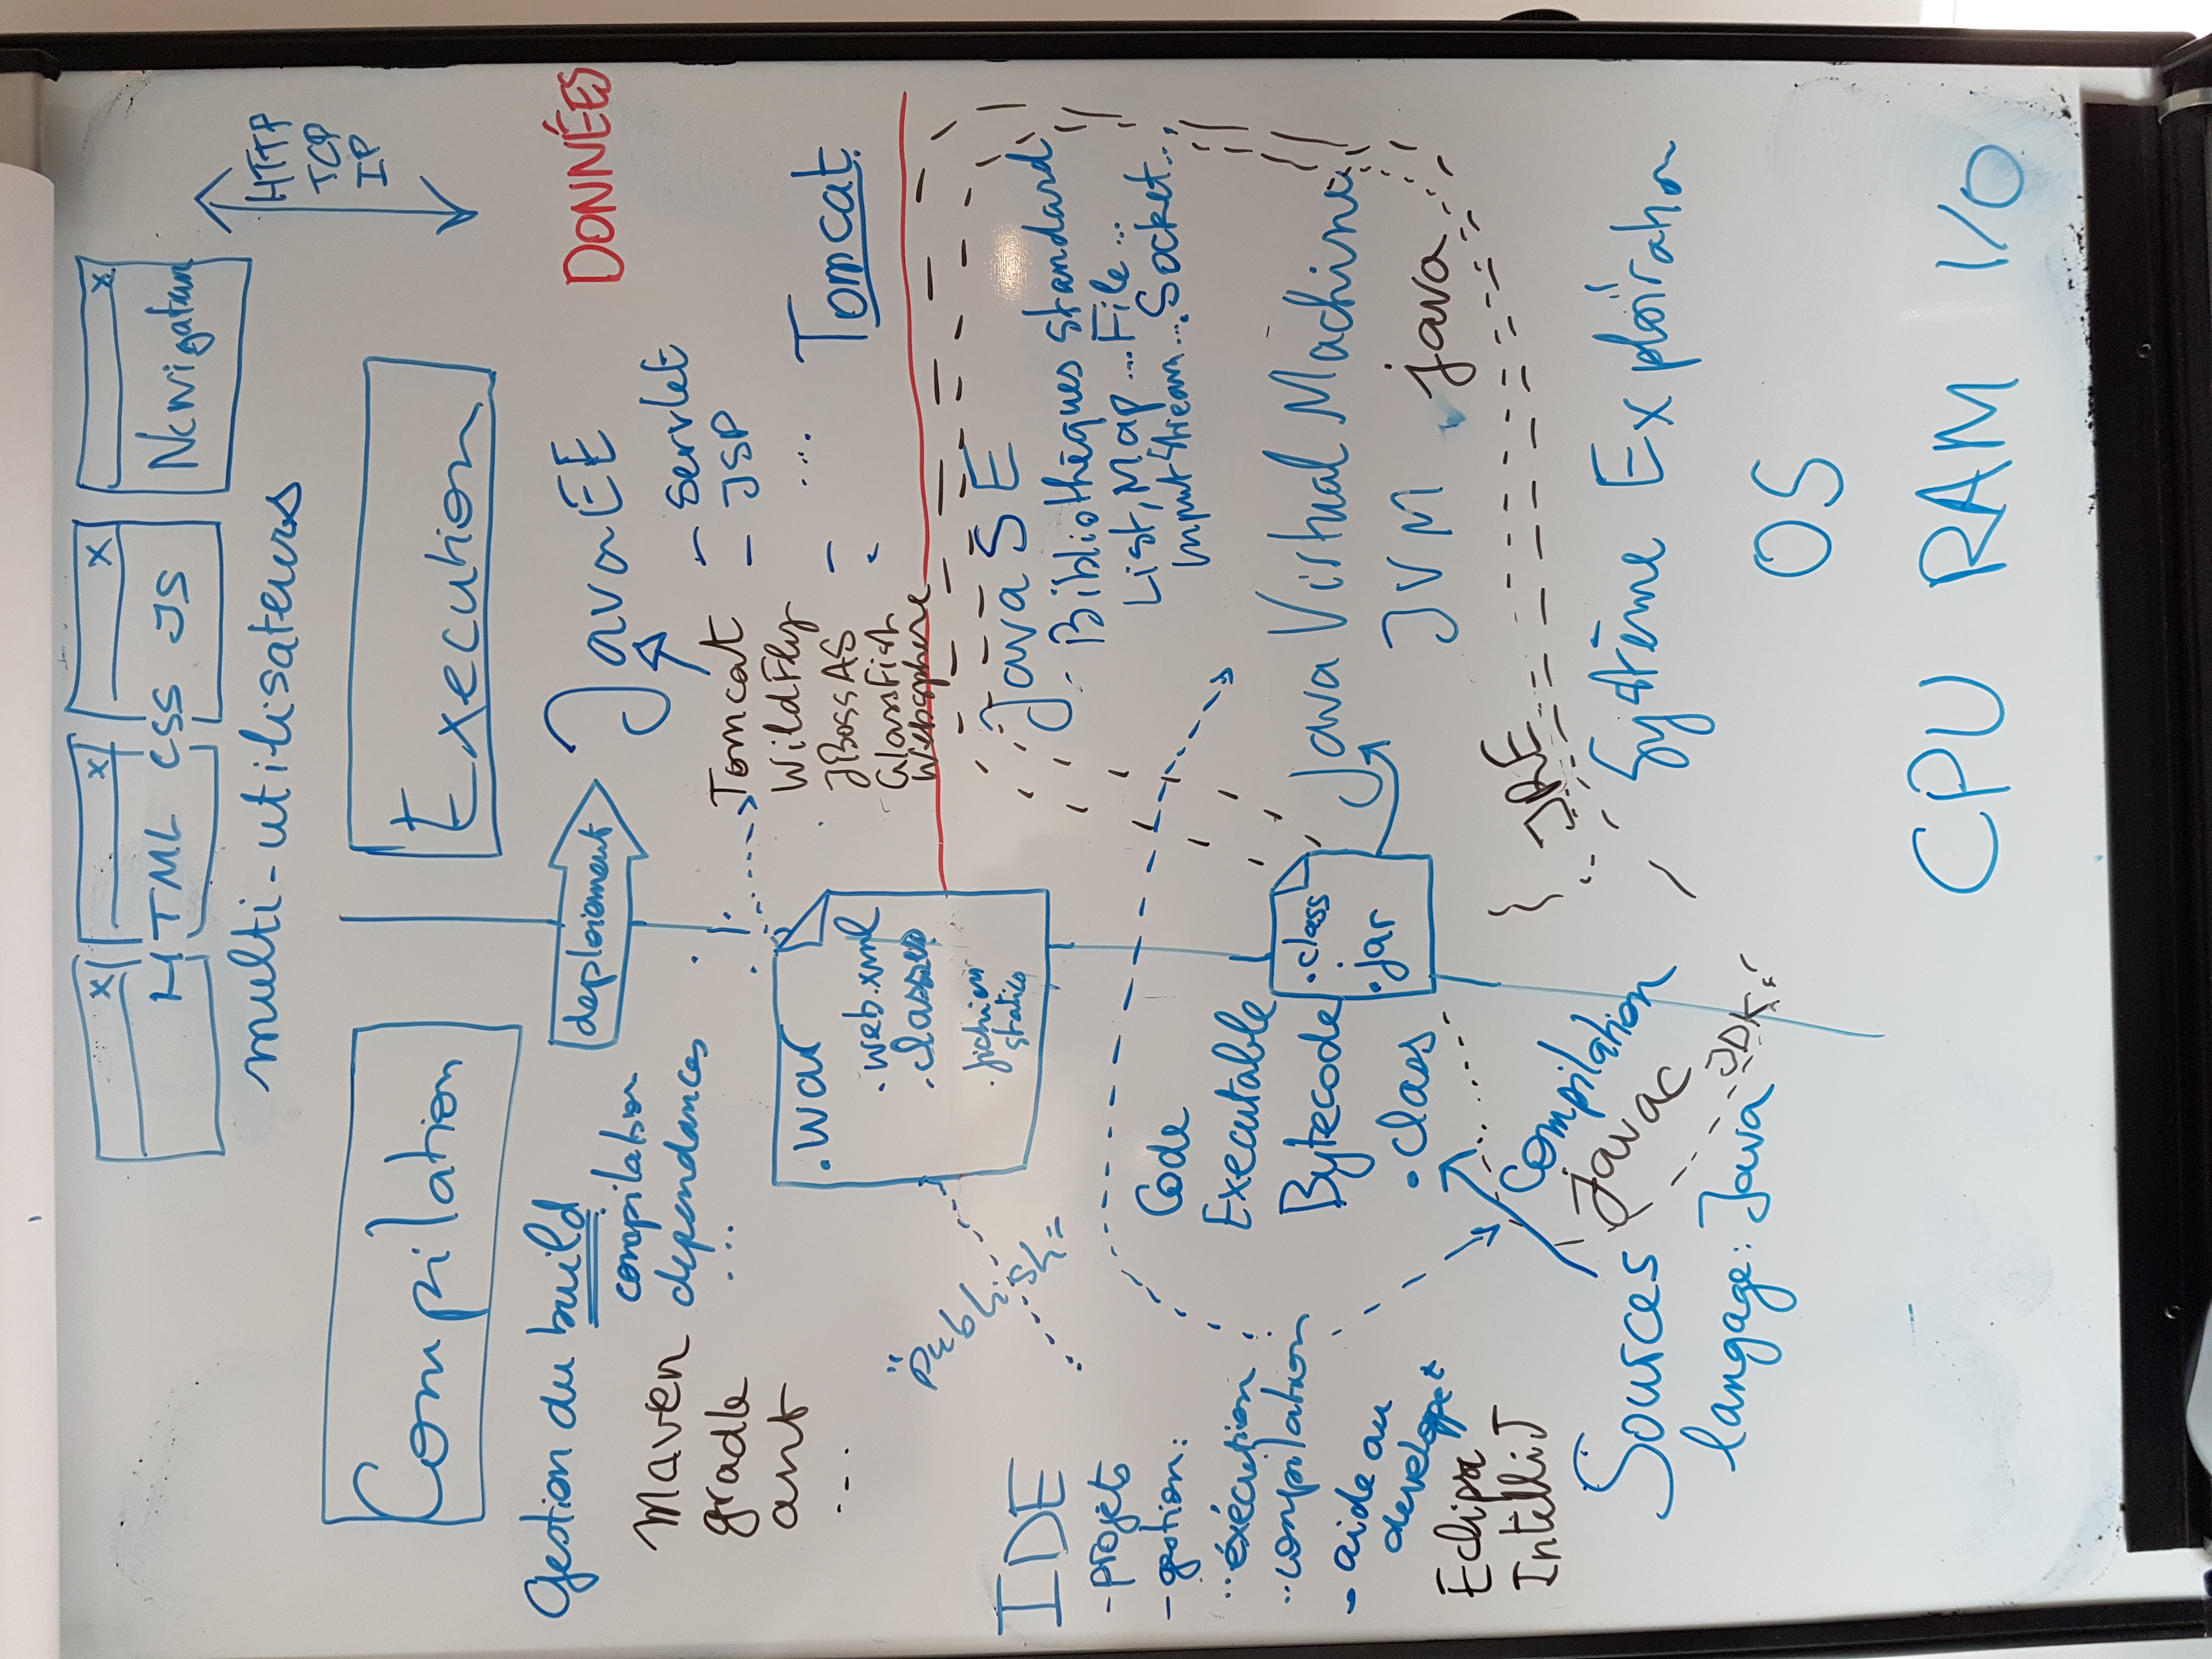 x x x x
HTML CSS JS
Navigateur
multi-utilisateurs
HTTP
TCP
IP
Compilation
Execution
Gestion du build
compilation
dependances
...
Maven
gradle
ant
...
deploiement
JavaEE
DONNÉES
- Servlet
- JSP
...
-
-
Tomcat
WildFly
JBossAS
GlassFish
Websphere
Tomcat
.war
.web.xml
.classes
.fichiers
statics
"Publish"
IDE
- projets
- gestion:
.. éxécution
.. compilation
- aide au
developpet
Eclipse
IntelliJ
Code
Executable
Bytecode
.class
.class
.jar
Java SE
- Bibliothèques standard
List, Map ... File ...
InputStream ... Socket ...
Java Virtual Machine
JVM java
JRE
Compilation
javac
JDK
Sources
langage: Java
Système Exploitation
OS
CPU RAM I/O